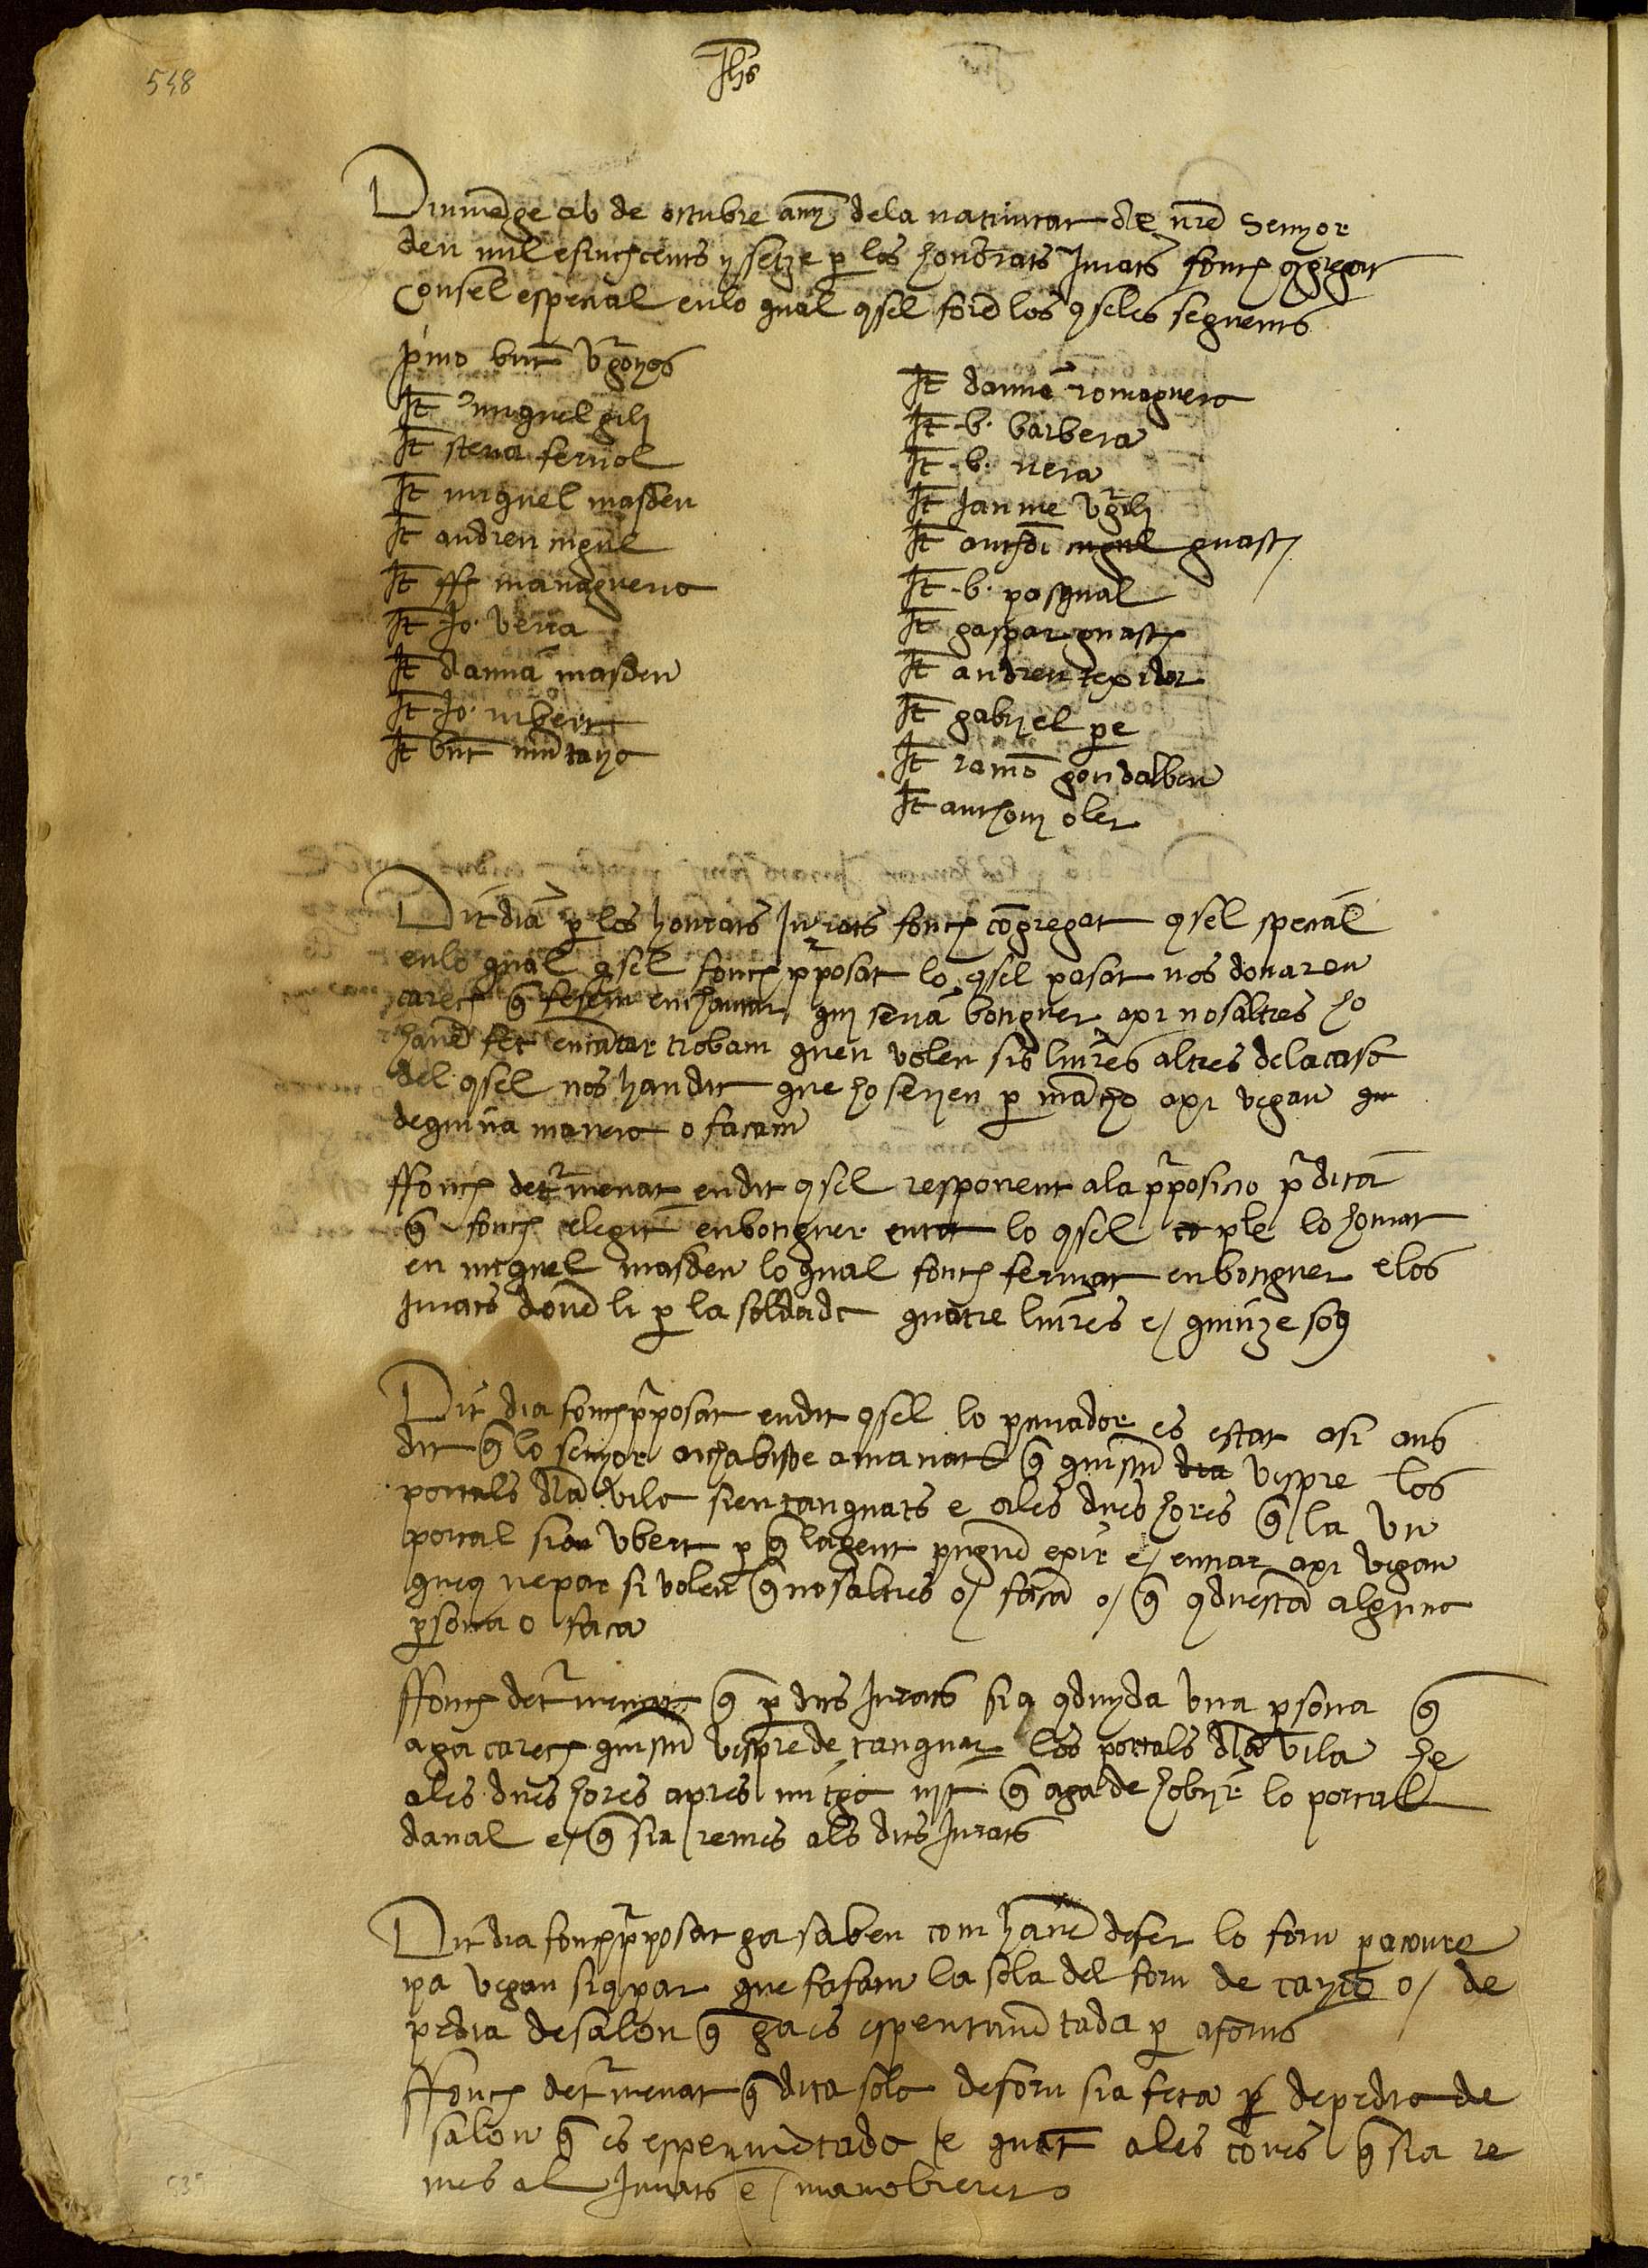 548
Jhs
Diumege a b de octubre any dela nativitat de nre Senyor
deu mil e sinch cents y setze p los honorats Jurats fonch cgregat
Consel especial enlo qual csel fore los cselés seguents
pimo bnt vrgonyos
It miquel gili
It steva feriol
It miquel masdeu
It andreu cugul
It ff managuerra
It Jo. verra
It damia masdeu
It Jo. rubert
It bnt muntayo
It damia romaguera
It b. barbera
It b. vera
It Jaume vrgili
It anthoi cugul guasch
It b. pasqual
It gaspar guasch
It andreu texidor
It gabriel pe
It ramo gondalbeu
It anthoni oler
Dit dia p los honrats Jurats fonch cogregat csel special
enlo qual csel fonch pposat lo csel pasat nos donaren
carech q fesem enchantar qui seria botiguer axi nosaltres ho
have fet encatar trobam queu volen sis liures altres dela casa
del csel nos han dit que ho serien p macho axi vegau
de quina manera o facam
ffonch detrmenat en dit csel responent ala pposicio pdita
q fonch elegit en botiguer entot lo csel ple lo honrat
en miquel masdeu lo qual fonch fermat en botiguer e los
Jurats done li p la soldada quatre liures e quinze sos
Dit dia fonch pposat en dit csel lo procurador es estat asi ens
dit q lo senyor archabisbe a manat q quiscu dia vespre los
portals dla vila sien tanquats e ales dues hores q la un
portal sia ubert p q la gent pugue exir e entrar axi vegau
queus ne par si voleu q nosaltres o faca o q cduescha alguna
psona o faca
ffonch detrmenat q p dits Jurats sia cduyda una psona q
aga carech quiscu vespre de tanquar los portals dla vila he
ales dues hores apres mitga nit q aga de hobrir lo portal
daval e q sia remes als dits Jurats
Dit dia fonch pposat ja saben com have de fer lo forn p a coure
pa vegau siaus par que fasam la sola del forn de cayro o de
pedra de salou q ja es esperimetada p a forns
ffonch detrmenat q dita sola de forn sia feta de pedra de
salou q es esperimetada e quat ales coves q sia re
mes al Jurats e manobrerer